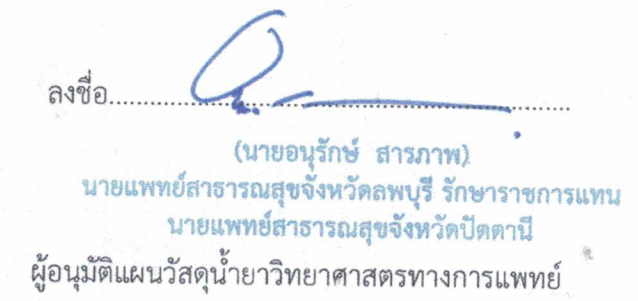 ลงชื่อ......................................................................
(นายอนุรักษ์ สารภาพ)
นายแพทย์สาธารณสุขจังหวัดลพบุรี รักษาราชการแทน
นายแพทย์สาธารณสุขจังหวัดปัตตานี
ผู้อนุมัติแผนวัสดุน้ำยาวิทยาศาสตรทางการแพทย์